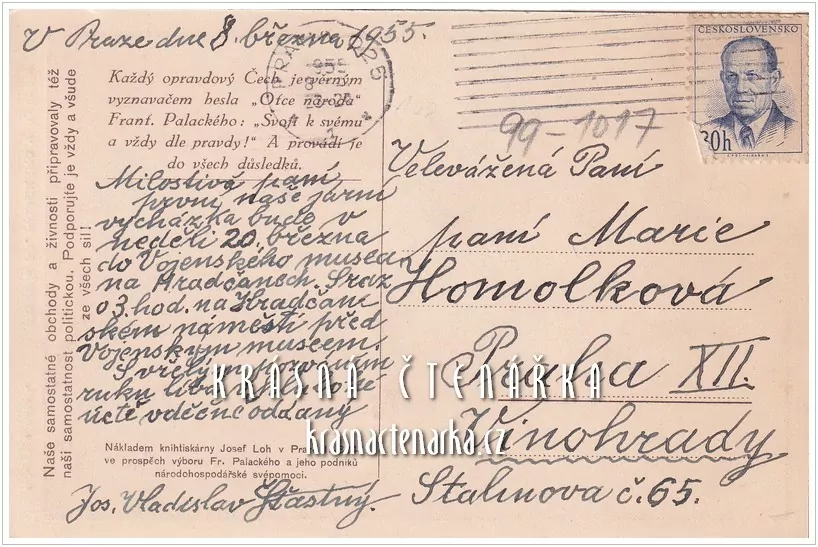 V Praze dne 8. března 1955.
ČESKOSLOVENSKO
30h
99-1017
Naše samostatné obchody a živnosti připravovaly též
naši samostatnost politickou. Podporujte je vždy a všude
ze všech sil!
Každý opravdový Čech je věrným
vyznavačem hesla „Otce národa"
Frant. Palackého: „Svoji k svému
a vždy dle pravdy!" A provádí je
do všech důsledků.
Milostivá paní
první naše jarní
vycházka bude v
neděli 20. března
do Vojenského musea
na Hradčanech. Sraz
o 3 hod. na Hradčan
ském náměstí před
Vojenským museem.
S vřelým pozdravem
ruku líbá v hluboké
úctě vděčně oddaný
Nákladem knihtiskárny Josef Loh v
ve prospěch výboru Fr. Palackého a jeho podniků
národohospodářské svépomoci.
Jos. Vladislav Šťastný.
Velevážená Paní
paní Marie
Homolková
Praha XII.
Vinohrady
Stalinova č. 65.
KRÁSNÁ ČTENÁŘKA
krasnactenarka.cz